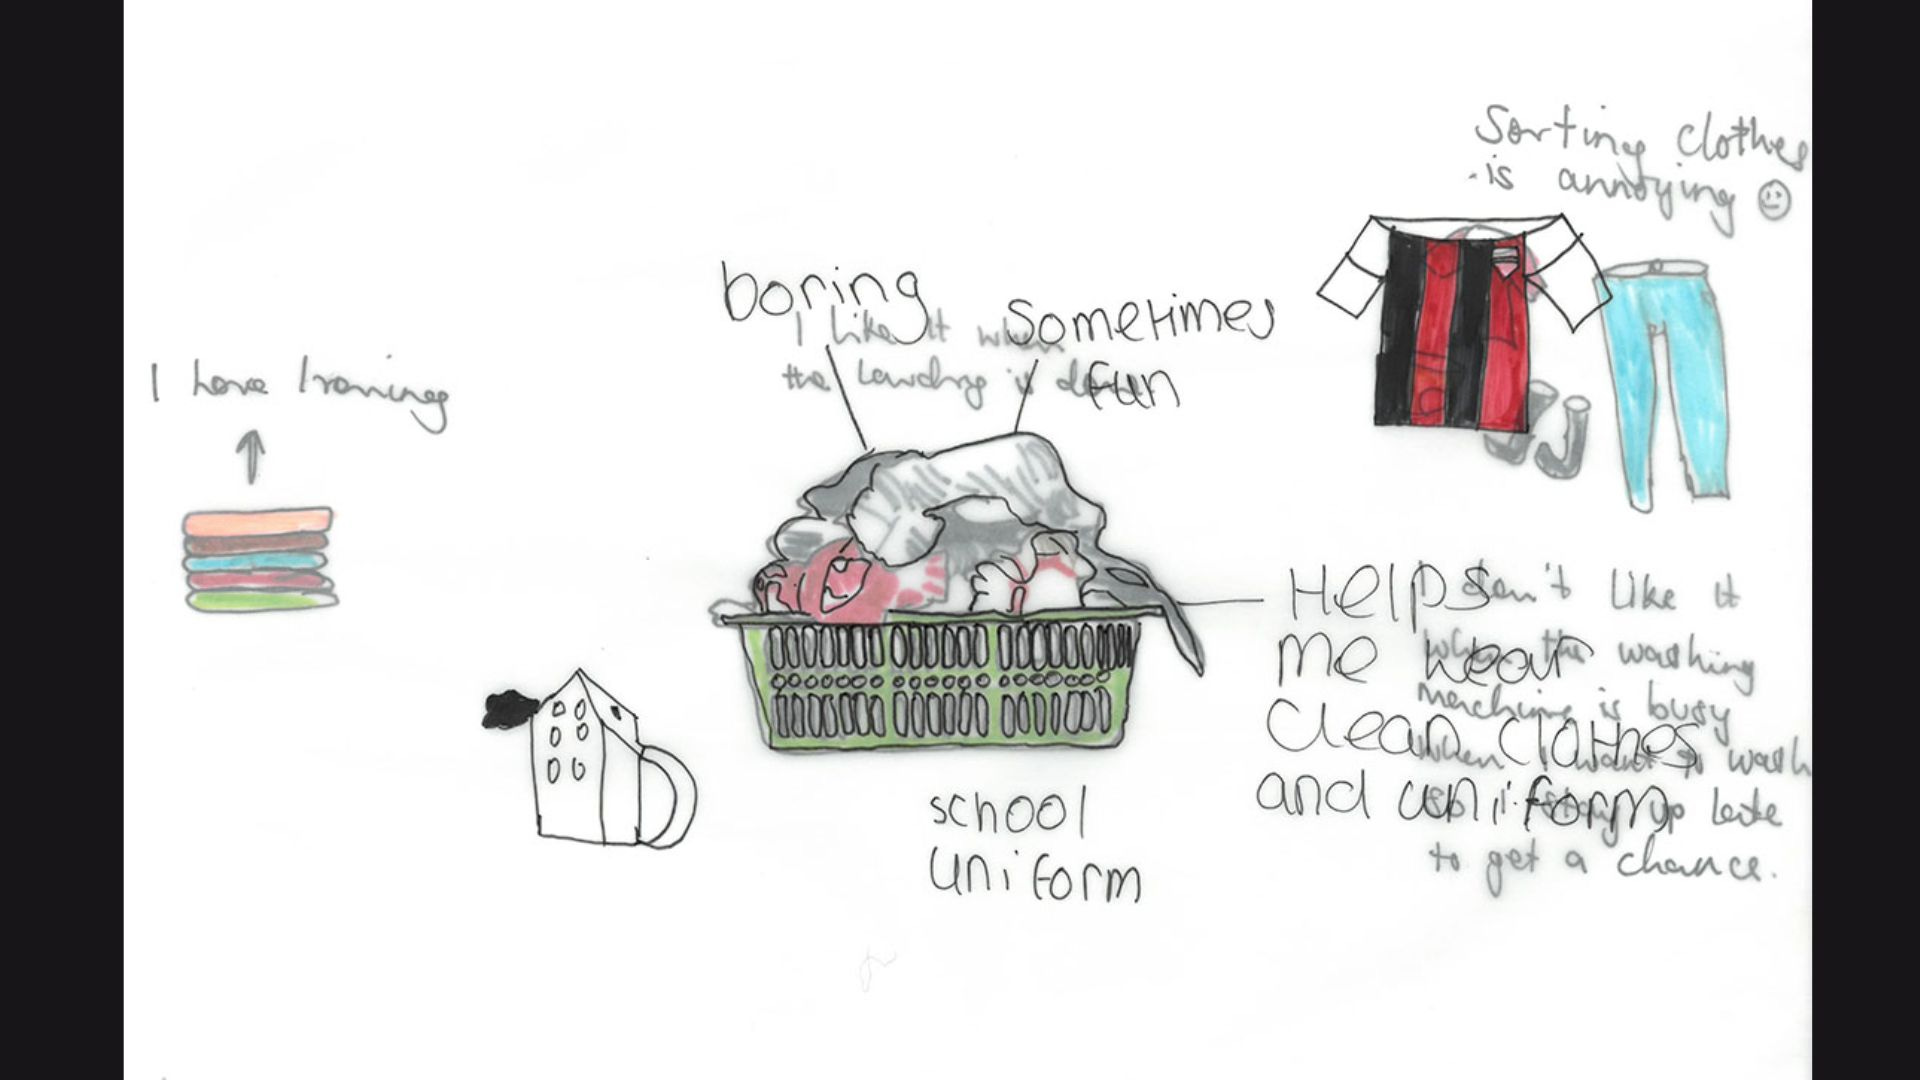 Sorting clothes
is annoying
boring
Sometimes
fun
I like it when
the laundry is
I Ironing
Helps
me wear
clean clothes
and uniform
don't like it
when the washing
machine is busy
when I want to wash
up late
to get a chance.
school
uniform